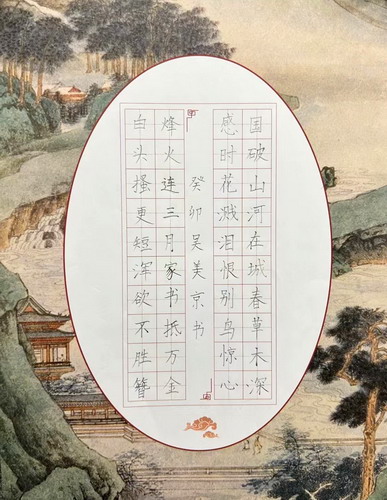 国破山河在城春草木深
感时花溅泪恨别鸟惊心
癸卯吴美京书
烽火连三月家书抵万金
白头搔更短浑欲不胜簪